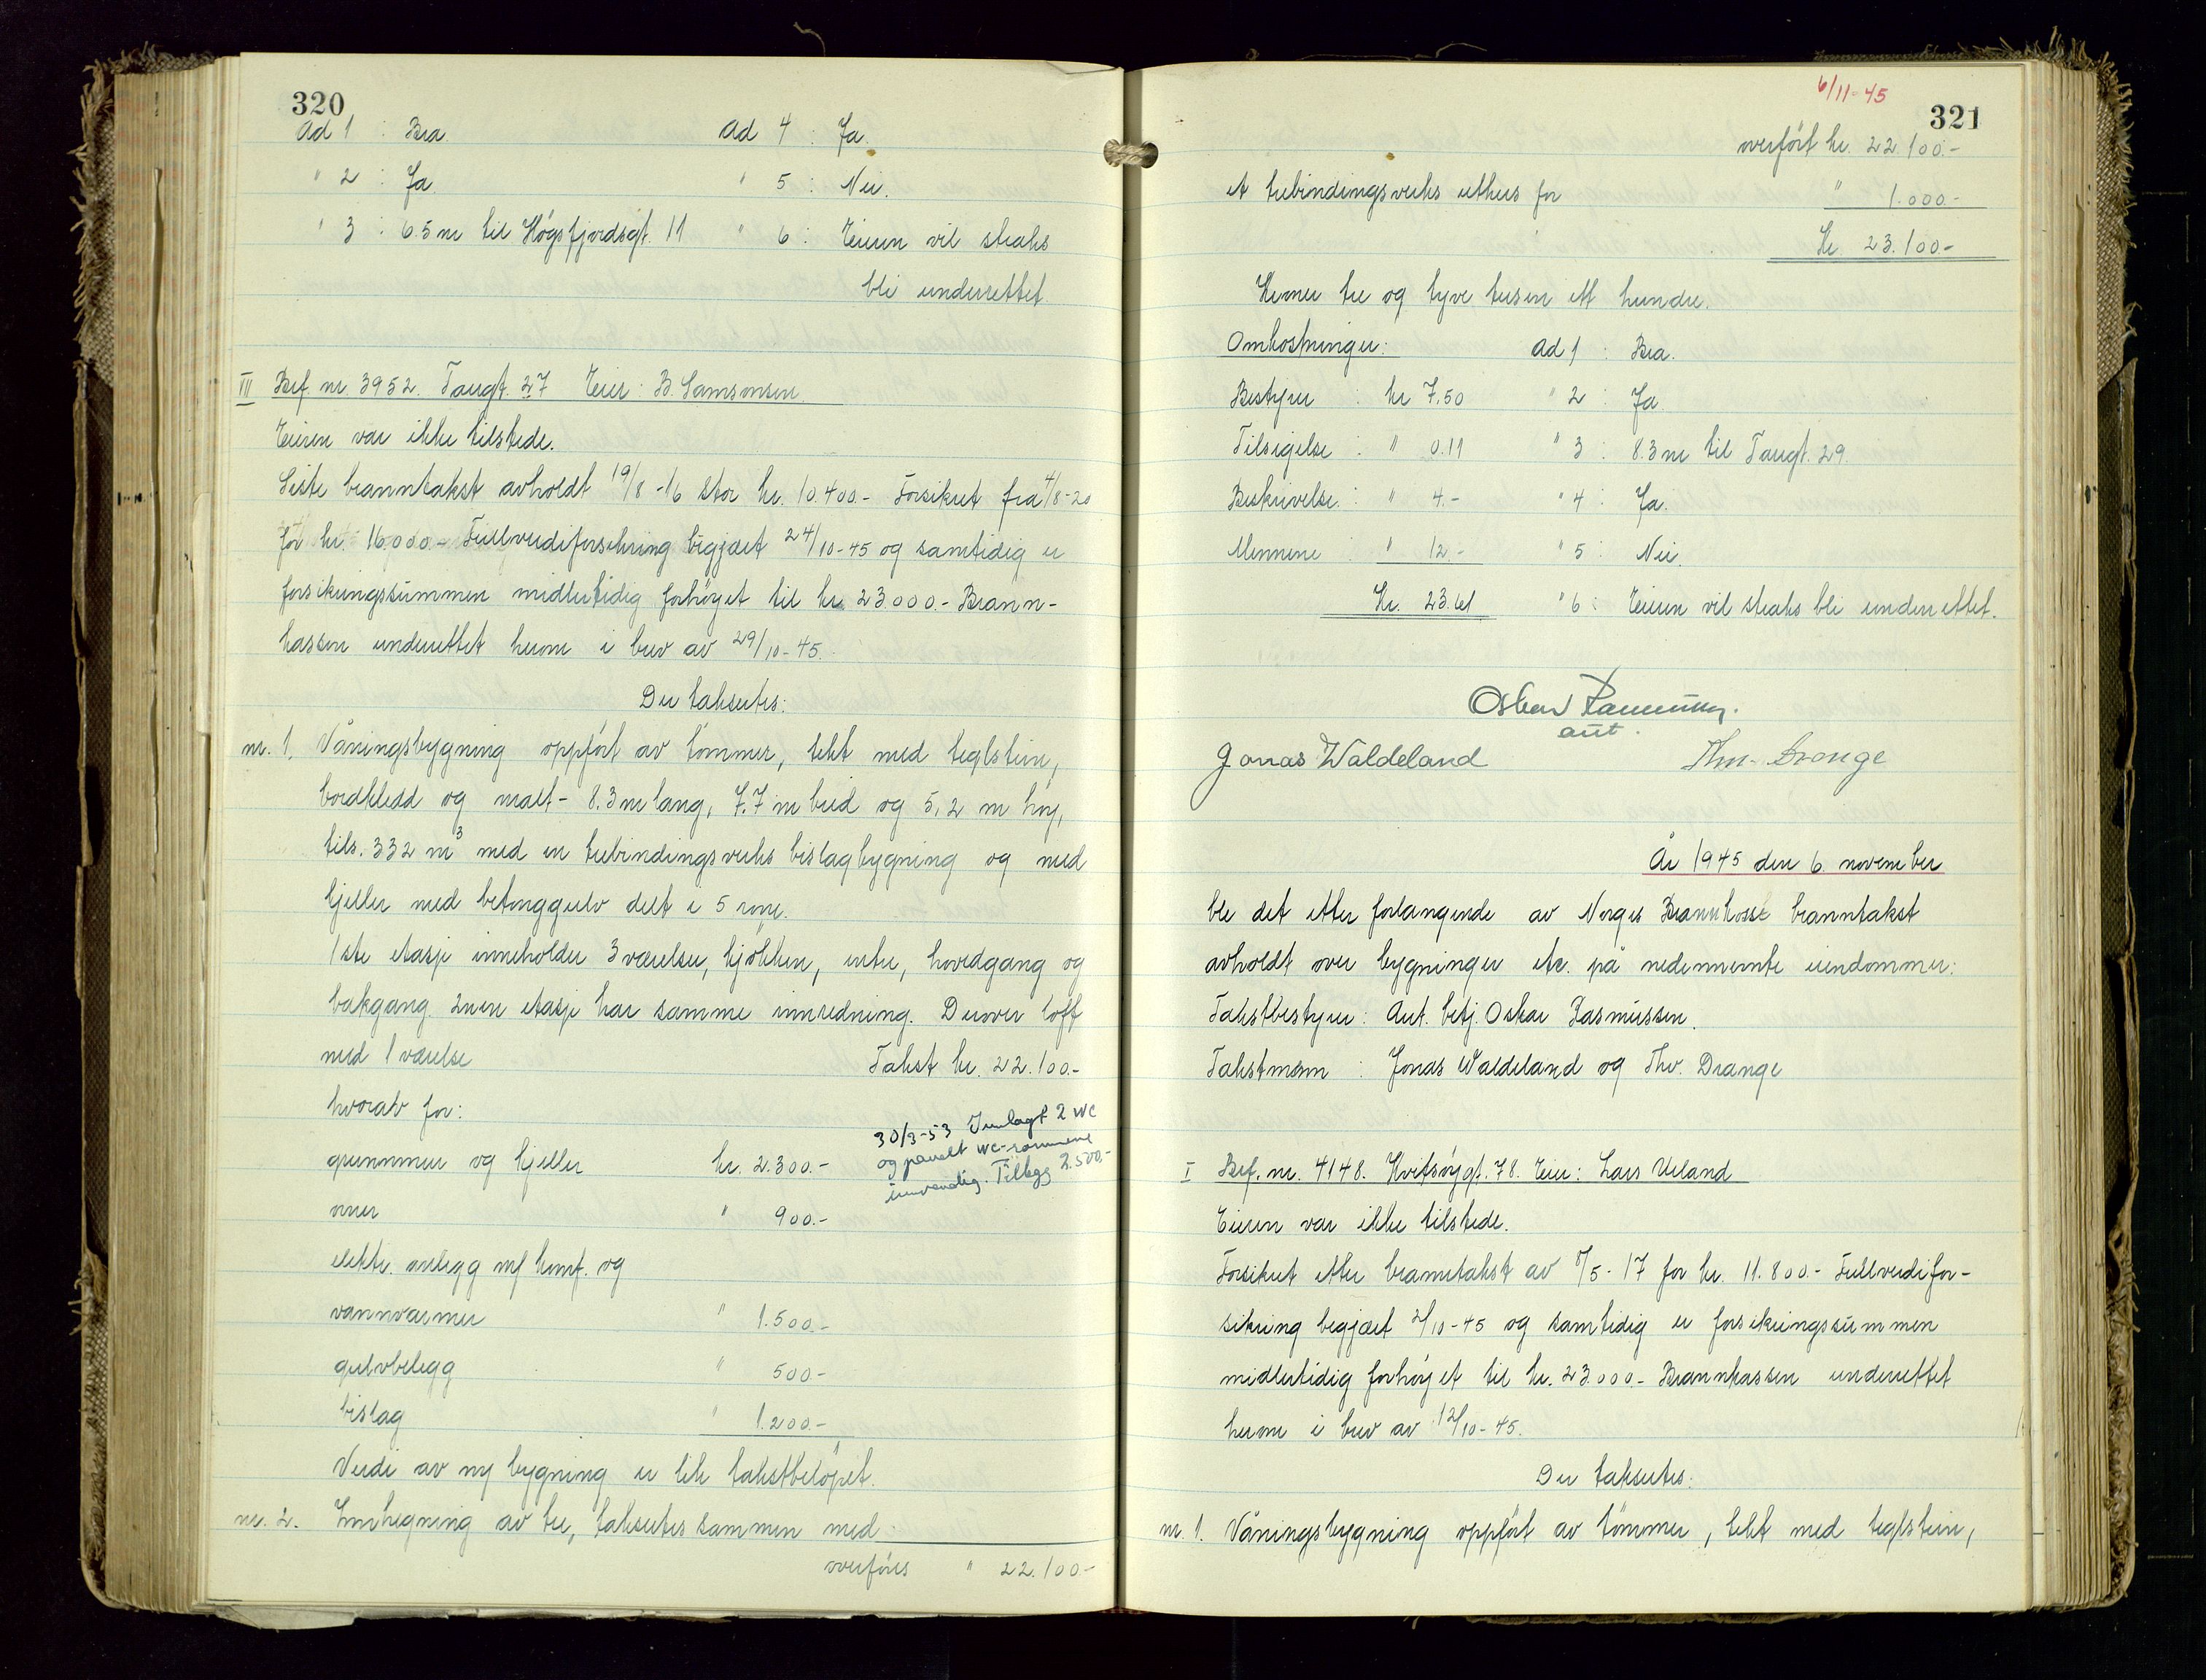 320
Ad 1 : Bra. Ad 4 : Ja.
" 2 : Ja. " 5 : Nei.
" 3 : 6.5 m til Høgsfjordsgt. 11 " 6 : Eieren vil straks
bli underrettet.
VII Brf. nr. 3952. Taugt. 27 Eier: B. Samsonsen
Eieren var ikke tilstede.
Siste branntakst avholdt 19/8-16 stor kr. 10.400.- Forsikret fra 4/8-20
for kr. 16.000.- Fullverdiforsikring begjært 24/10-45 og samtidig er
forsikringssummen midlertidig forhöyet til kr. 23.000.- Brann-
kassen underrettet herom i brev av 29/10-45.
Der takseres:
nr. 1. Våningsbygning oppfört av tömmer, tekt med teglstein,
bordkledd og malt - 8.3 m lang, 7.7 m bred og 5,2 m höy,
tils. 332 m³ med en trebindingsverks bislagbygning og med
kjeller med betonggulv delt i 5 rom.
1ste etasje inneholder 3 værelser, kjökken, entre, hovedgang og
bakgang. 2nen etasje har samme innredning. Derover loft
med 1 værelse Takst kr. 22.100.-
hvorav for:
grunnmur og kjeller kr. 2.300.-
30/3-53 Innlagt 2 WC
og panelt WC-rommene
innvendig. Tillegg 2.500.-
ovner " 900.-
elektr. anlegg m/ komf. og
vannvarmer " 1.500.-
gulvbelegg " 500.-
bislag " 1.200.-
Verdi av ny bygning er lik takstbelöpet.
nr. 2. Innhegning av tre, takseres sammen med
overföres " 22.100.-
6/11-45
321
overfört kr. 22.100.-
et trebindingsverks uthus for " 1.000.-
Kr. 23.100.-
Kroner tre og tyve tusen ett hundre.
Omkostninger: Ad 1 : Bra.
Bestyrer : kr 7.50 " 2 : Ja
Tilsigelse : " 0.11 " 3 : 8.3 m til Taugt. 29.
Beskrivelse : " 4.- " 4 : Ja.
Mennene : " 12.- " 5 : Nei.
Kr. 23.61 " 6 : Eieren vil straks bli underrettet.
Oskar Rasmussen.
aut.
Jonas Waldeland Thv. Drange
År 1945 den 6. november
ble det etter forlangende av Norges Brannkasse branntakst
avholdt over bygninger etc. på nedennevnte eiendommer:
Takstbestyrer: Aut. betj. Oskar Rasmussen.
Takstmenn : Jonas Waldeland og Thv. Drange
I Brf. nr. 4148. Hvitsøygt. 78. Eier: Lars Ueland
Eieren var ikke tilstede.
Forsikret etter branntakst av /5-17 for kr. 11.800.- Fullverdifor-
sikring begjært 2/10-45 og samtidig er forsikringssummen
midlertidig forhöyet til kr. 23.000.- Brannkassen underrettet
herom i brev av 12/10-45.
Der takseres:
nr. 1. Våningsbygning oppfört av tömmer, tekt med teglstein,